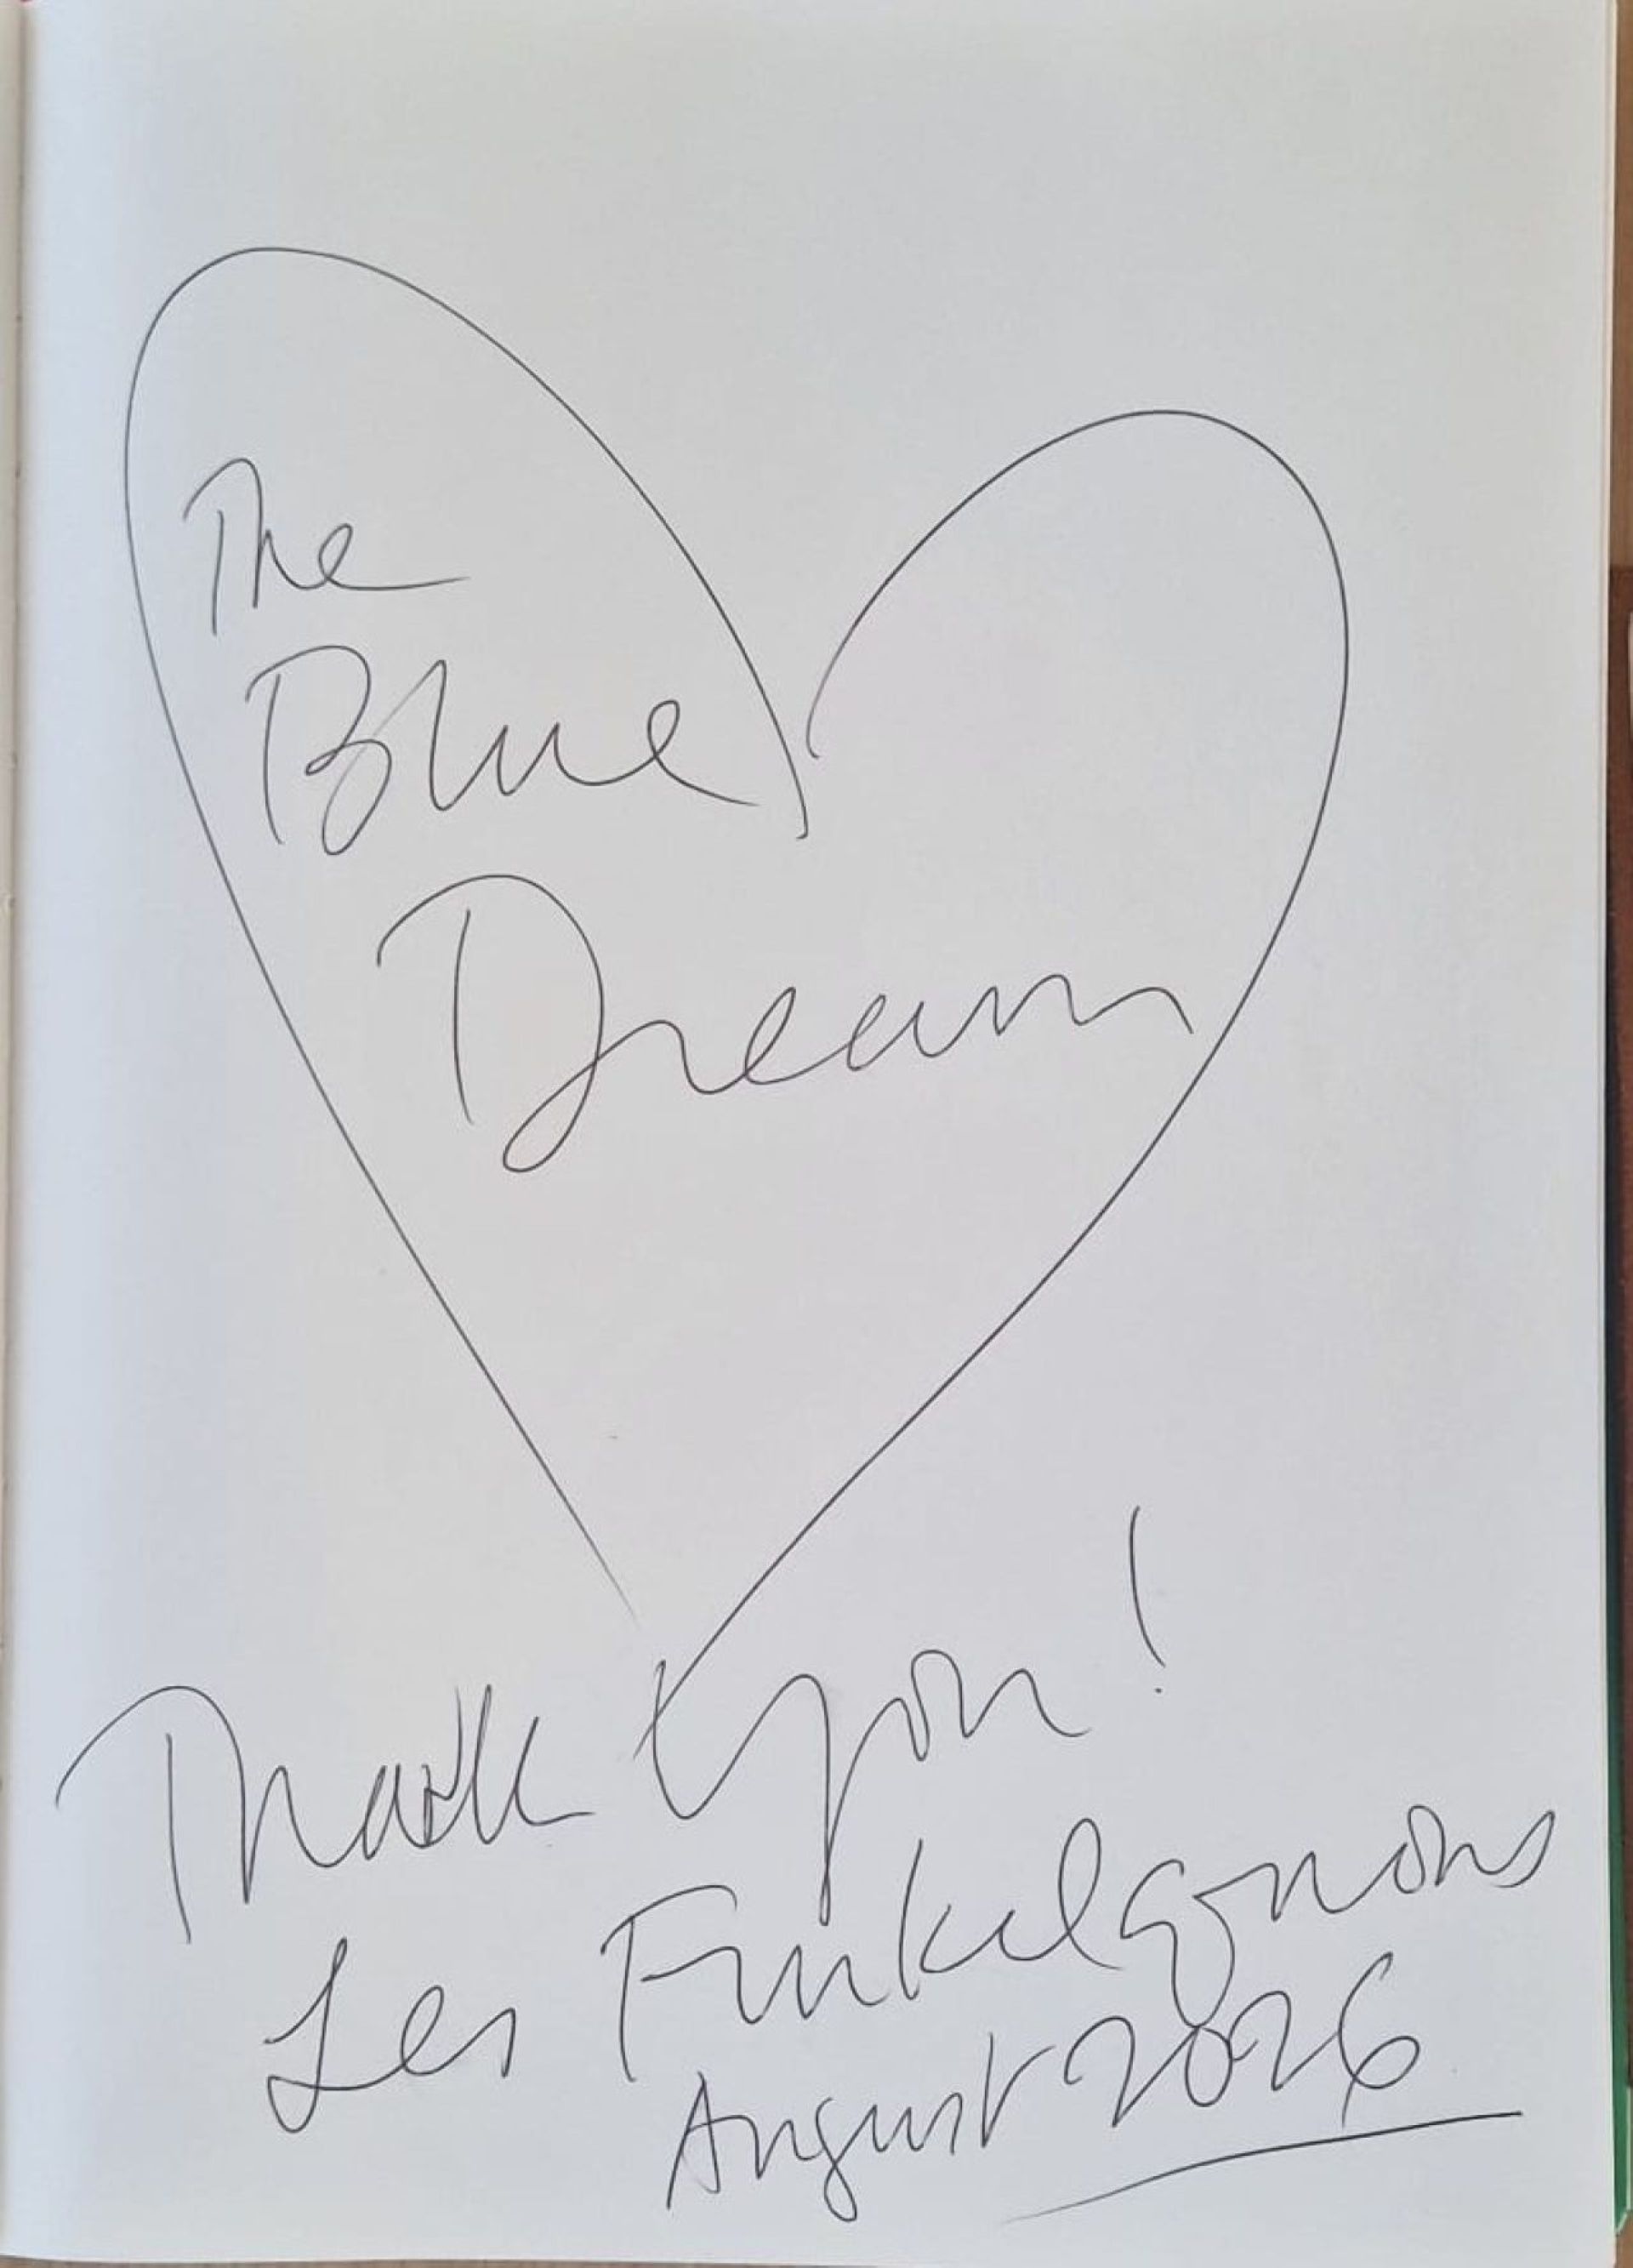 The
Blue
Dream
Thank you!
Les Finkelgnons
August 2026